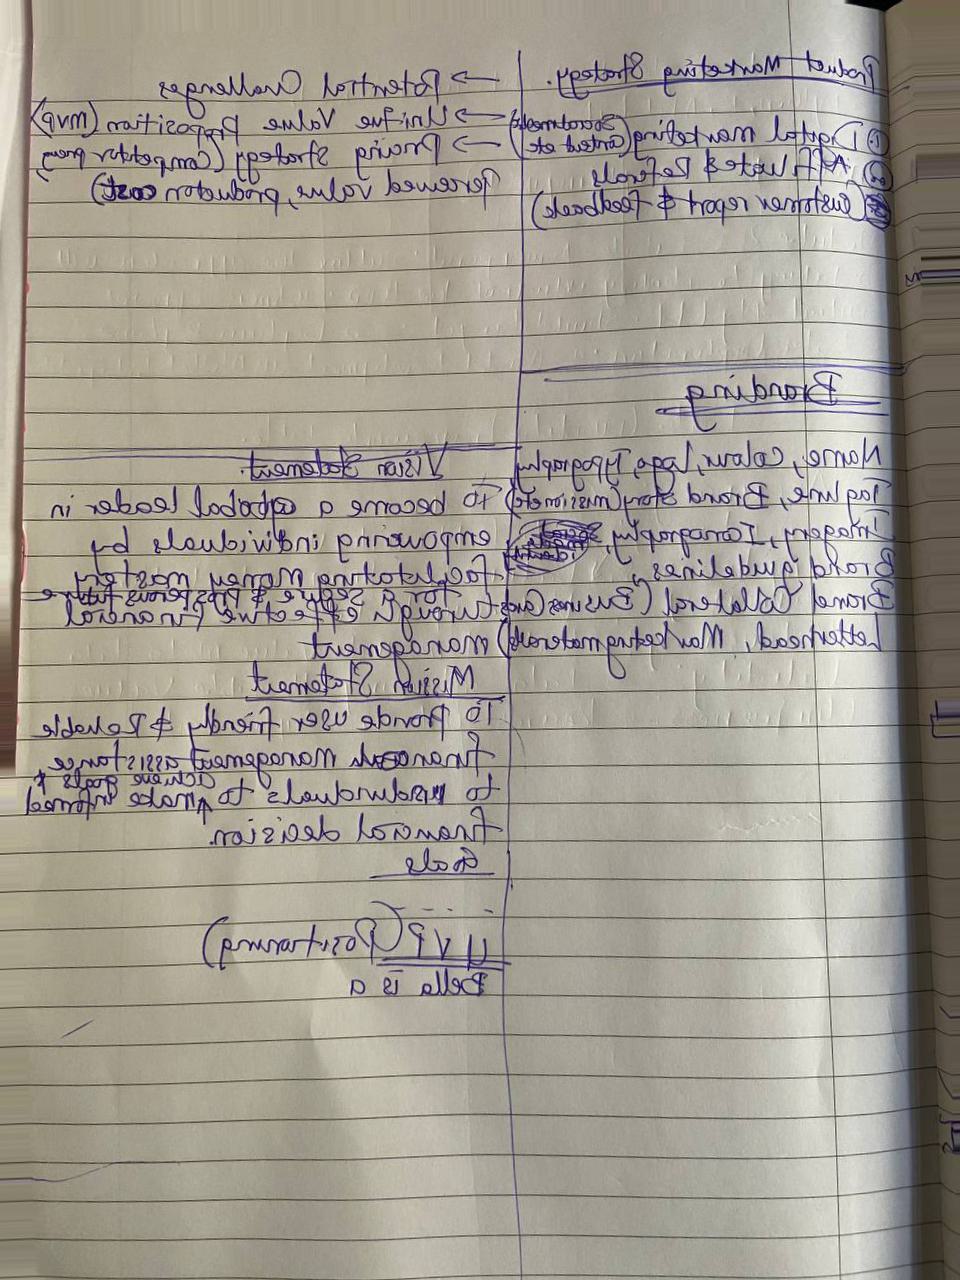 Product Marketing Strategy.
① Digital marketing (content etc)
② Affiliate & Referrals
Customer report & feedback)
Branding
Name, Colour, Logo, Typography
Tagline, Brand Story (mission etc)
Imagery, Iconography,
Brand guidelines,
Brand Collateral (Business Cards
Letterhead, Marketing materials)
→ Potential Challenges
→ Unique Value Proposition (MVP)
→ Pricing Strategy (Competitor pricing
Perceived value, production cost)
Vision Statement.
To become a global leader in
empowering individuals by
facilitating Money mastery
for a secure & prosperous future
through effective financial
management
Mission Statement
To provide user friendly & Reliable
financial Management assistance
to individuals to achieve goals & Make informed
financial decision.
Goals
UVP (Positioning)
Della is a